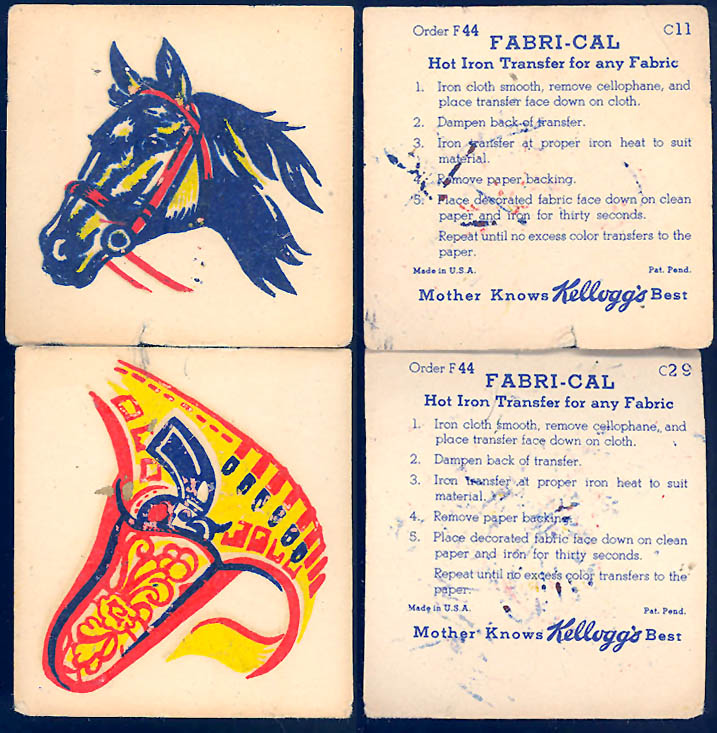 Order F44 C11
FABRI-CAL
Hot Iron Transfer for any Fabric
1. Iron cloth smooth, remove cellophane, and
place transfer face down on cloth.
2. Dampen back of transfer.
3. Iron transfer at proper iron heat to suit
material.
4. Remove paper backing.
5. Place decorated fabric face down on clean
paper and iron for thirty seconds.
Repeat until no excess color transfers to the
paper.
Made in U.S.A. Pat. Pend.
Mother Knows Kellogg's Best
Order F44 C29
FABRI-CAL
Hot Iron Transfer for any Fabric
1. Iron cloth smooth, remove cellophane, and
place transfer face down on cloth.
2. Dampen back of transfer.
3. Iron transfer at proper iron heat to suit
material.
4. Remove paper backing.
5. Place decorated fabric face down on clean
paper and iron for thirty seconds.
Repeat until no excess color transfers to the
paper.
Made in U.S.A. Pat. Pend.
Mother Knows Kellogg's Best